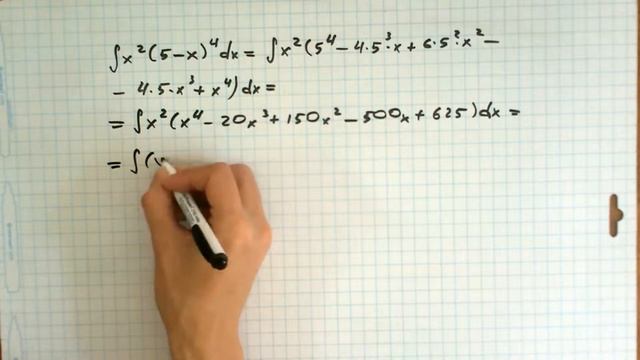 ∫x²(5-x)⁴dx = ∫x²(5⁴-4·5³·x+6·5²·x²-
-4·5·x³+x⁴)dx=
=∫x²(x⁴-20x³+150x²-500x+625)dx=
=∫(